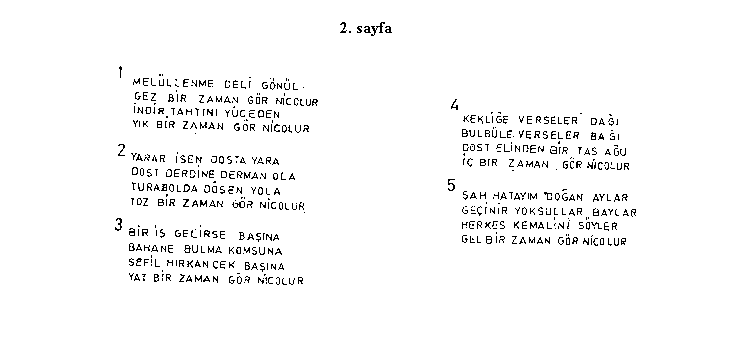 2. sayfa
1
MELÜLLENME DELİ GÖNÜL
GEZ BİR ZAMAN GÖR NİCOLUR
İNDİR TAHTINI YÜCEDEN
YIK BİR ZAMAN GÖR NİCOLUR
2
YARAR İSEN DOSTA YARA
DOST DERDİNE DERMAN OLA
TURABOLDA DÖŞEN YOLA
TOZ BİR ZAMAN GÖR NİCOLUR
3
BİR İŞ GELİRSE BAŞINA
BAHANE BULMA KOMSUNA
SEFİL HIRKAN ÇEK BAŞINA
YAT BİR ZAMAN GÖR NİCOLUR
4
KEKLİĞE VERSELER DAĞI
BULBÜLE VERSELER BAĞI
DOST ELİNDEN BİR TAS AĞU
İÇ BİR ZAMAN GÖR NİCOLUR
5
ŞAH HATAYIM DOĞAN AYLAR
GEÇİNİR YOKSULLAR BAYLAR
HERKES KEMALİNİ SÖYLER
GEL BİR ZAMAN GÖR NİCOLUR